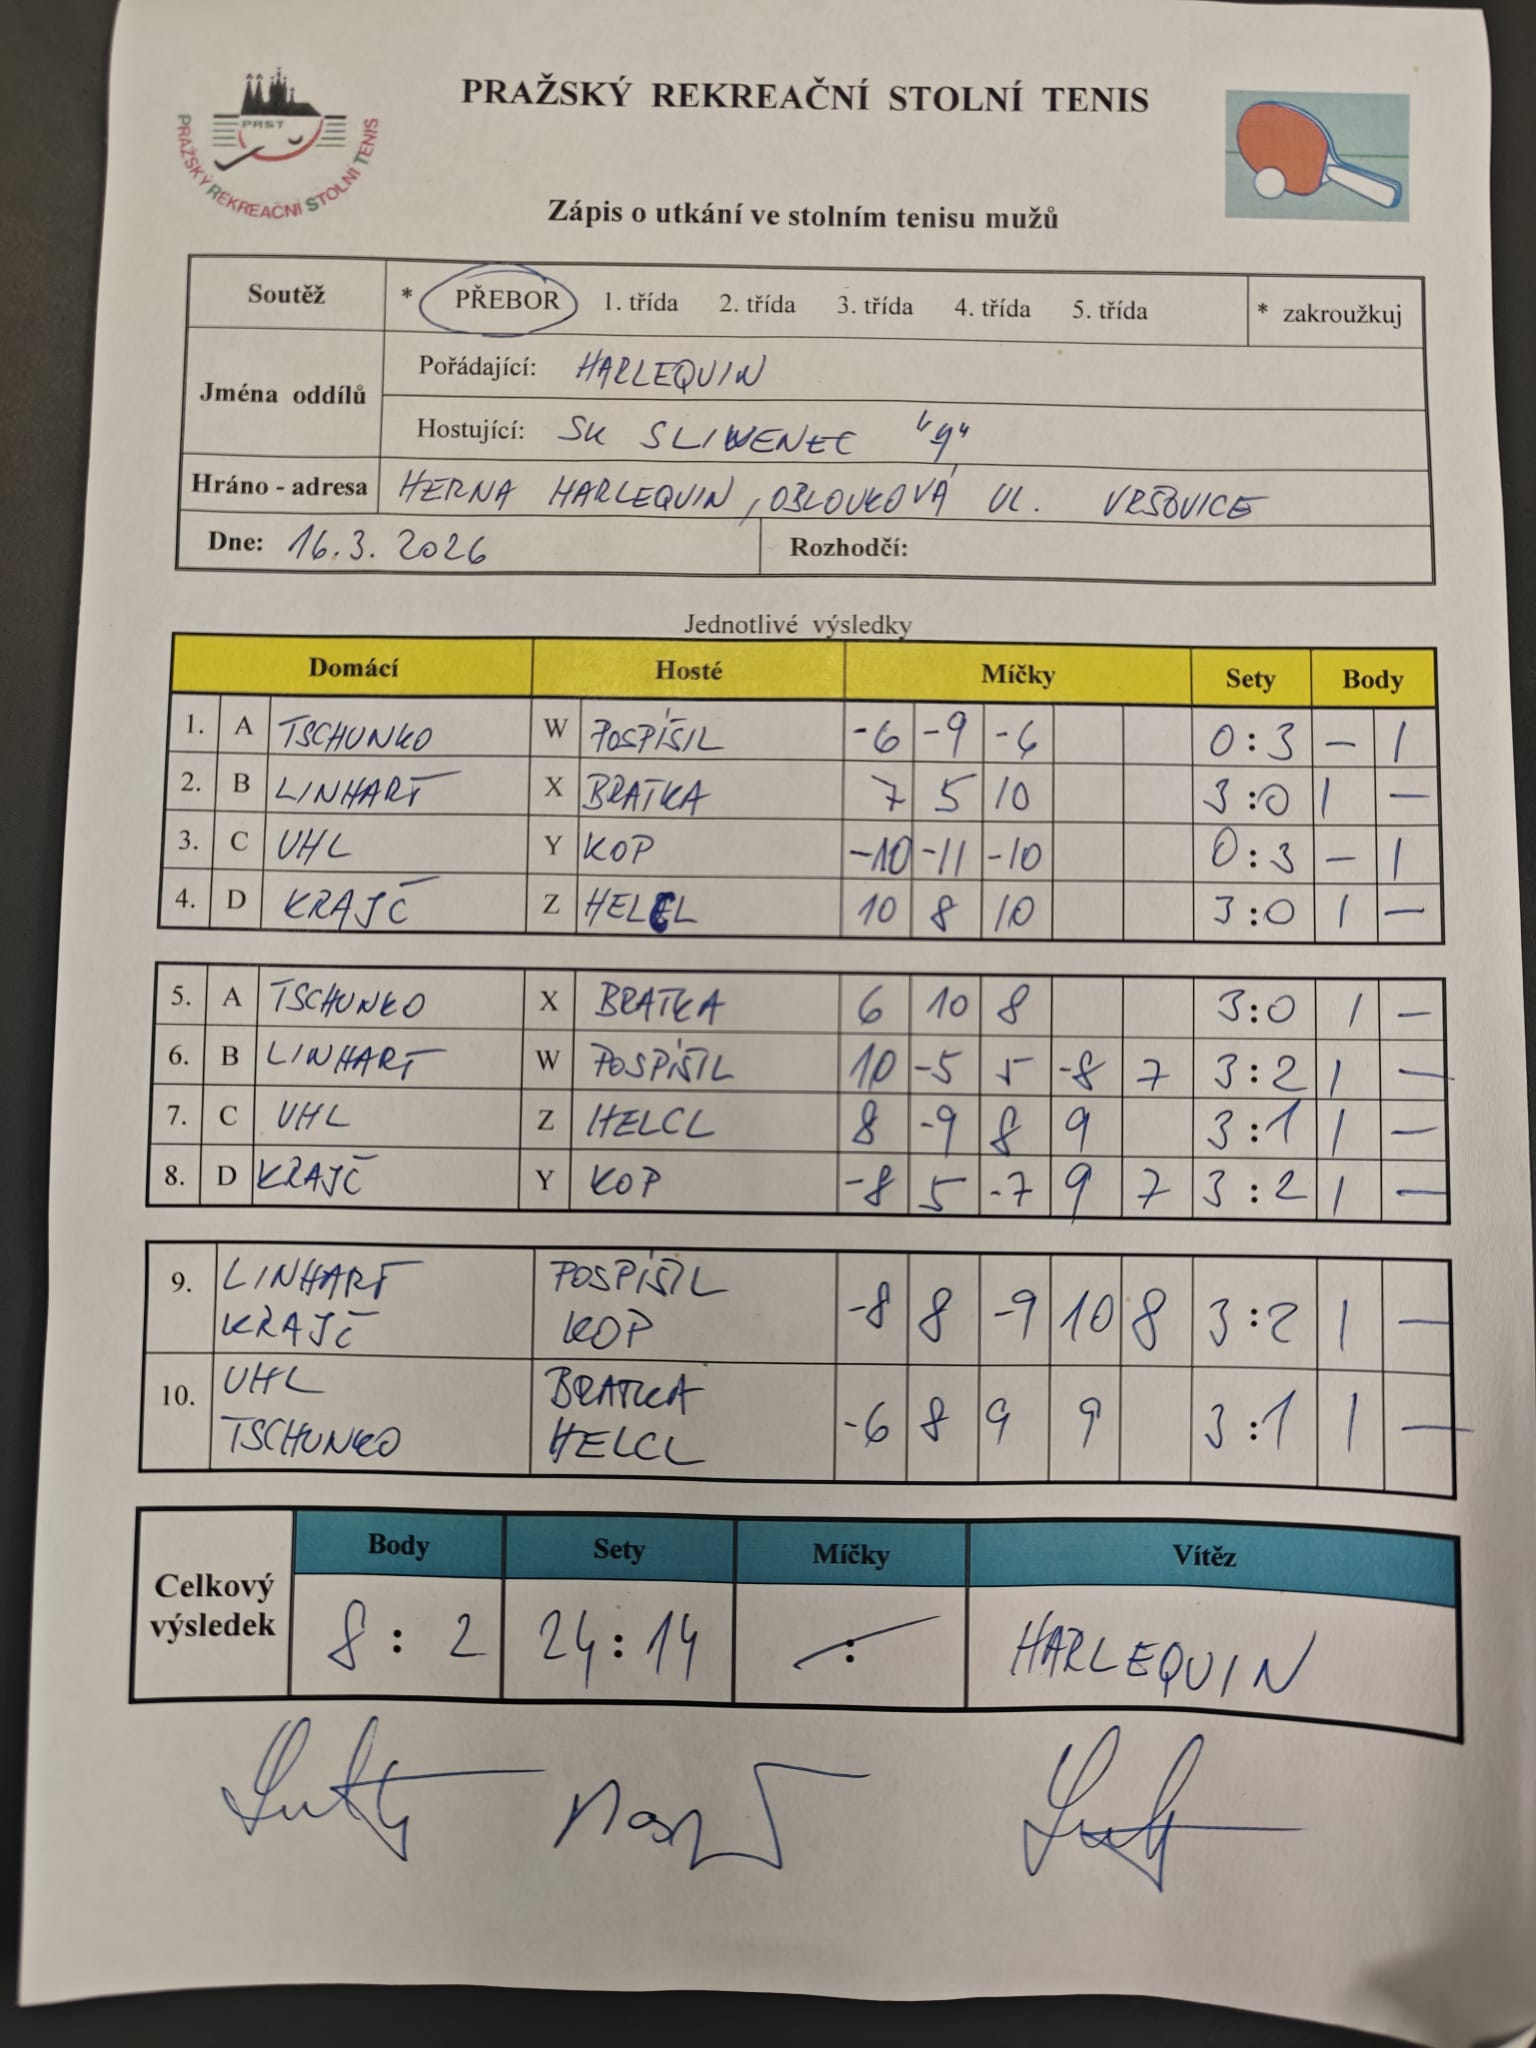 PRAŽSKÝ REKREAČNÍ STOLNÍ TENIS
PRST
PRAŽSKÝ REKREAČNÍ STOLNÍ TENIS
Zápis o utkání ve stolním tenisu mužů
Soutěž * PŘEBOR 1. třída 2. třída 3. třída 4. třída 5. třída * zakroužkuj
Jména oddílů
Pořádající: HARLEQUIN
Hostující: SK SLIVENEC "A"
Hráno - adresa HERNA HARLEQUIN, OBLOUKOVÁ UL. VRŠOVICE
Dne: 16.3. 2026 Rozhodčí:
Jednotlivé výsledky
Domácí Hosté Míčky Sety Body
1. A TSCHUNKO W POSPÍŠIL -6 -9 -6 0:3 - 1
2. B LINHART X BRATKA 7 5 10 3:0 1 -
3. C UHL Y KOP -10 -11 -10 0:3 - 1
4. D KRAJČ Z HELCL 10 8 10 3:0 1 -
5. A TSCHUNKO X BRATKA 6 10 8 3:0 1 -
6. B LINHART W POSPÍŠIL 10 -5 5 -8 7 3:2 1 -
7. C UHL Z HELCL 8 -9 8 9 3:1 1 -
8. D KRAJČ Y KOP -8 5 -7 9 7 3:2 1 -
9. LINHART POSPÍŠIL -8 8 -9 10 8 3:2 1 -
KRAJČ KOP
10. UHL BRATKA -6 8 9 9 3:1 1 -
TSCHUNKO HELCL
Celkový výsledek
Body Sety Míčky Vítěz
8 : 2 24:14 : HARLEQUIN